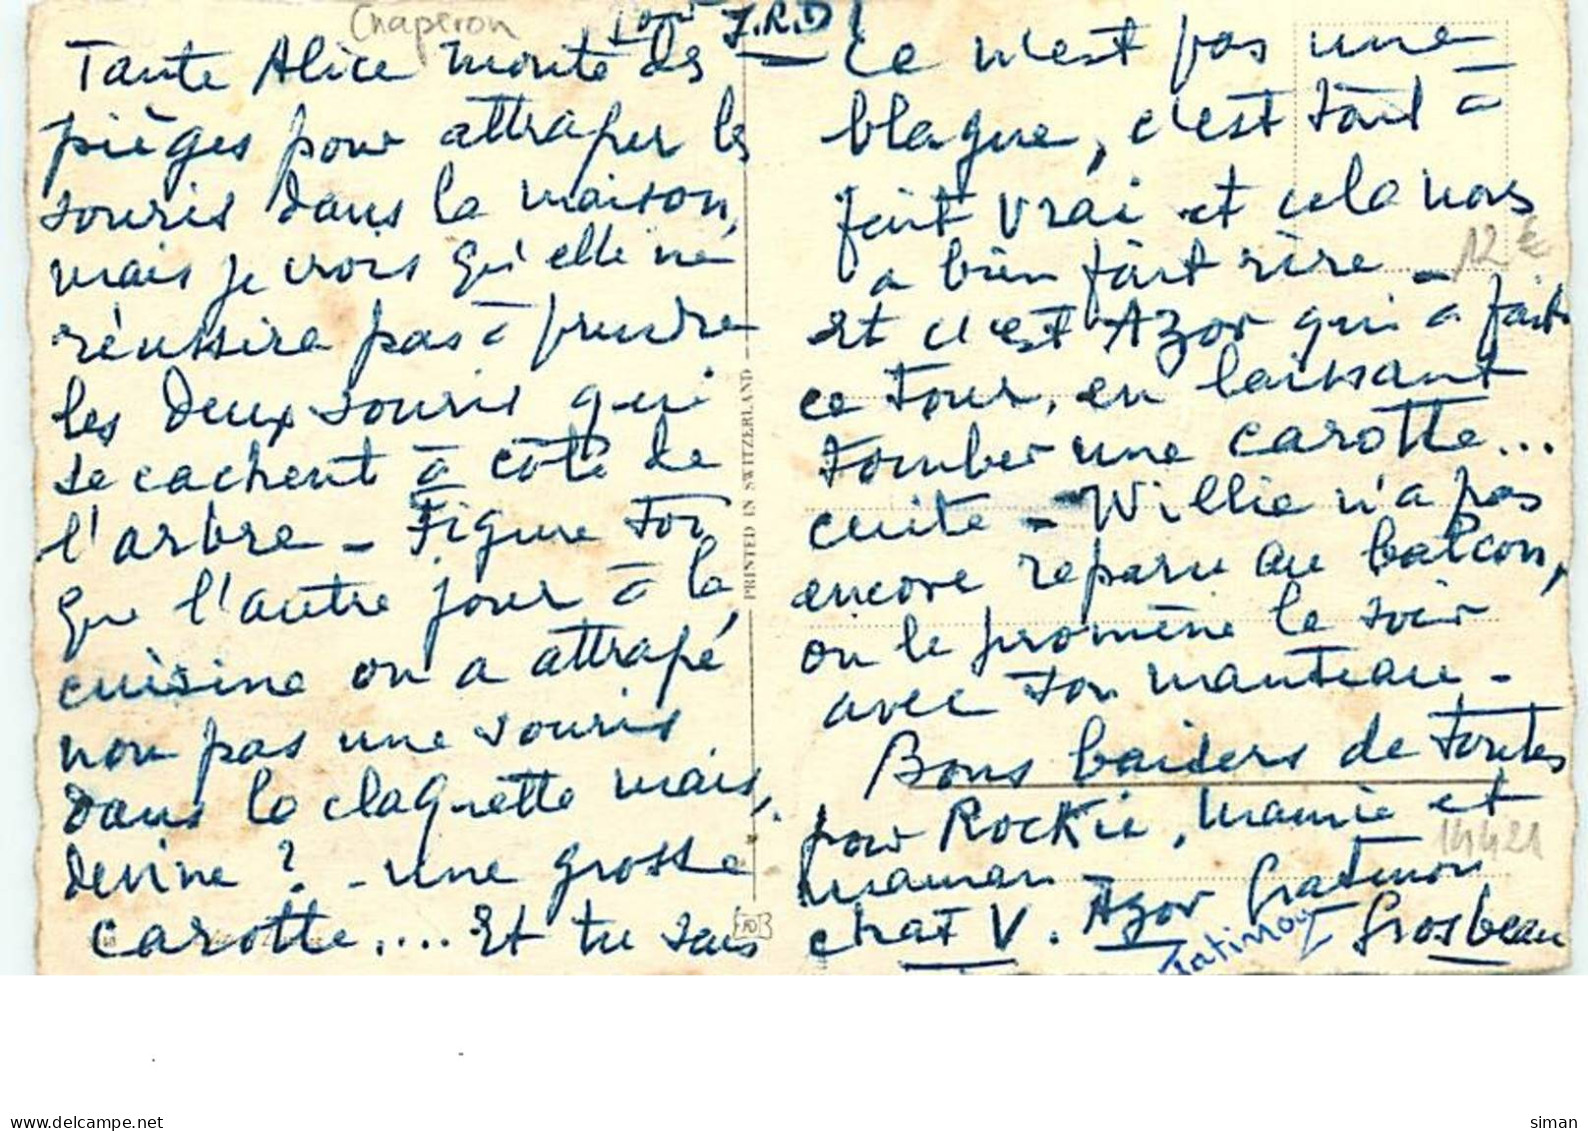 Chaperon
Pour J.R.D!
Tante Alice monte des
pièges pour attraper les
souris dans la maison,
mais je crois qu'elle ne
réussira pas à prendre
les deux souris qui
se cachent à côté de
l'arbre - Figure toi
que l'autre jour à la
cuisine on a attrapé
non pas une souris
dans la claquette mais,
devine ? - Une grosse
carotte.... Et tu sais
PRINTED IN SWITZERLAND
Ce n'est pas une
blague, c'est tout à
fait vrai et cela nous
a bien fait rire -
Et c'est Azor qui a fait
ce tour, en laissant
tomber une carotte...
cuite - Willie n'a pas
encore reparu au balcon,
on le promène le soir
avec son manteau -
Bons baisers de toutes
pour Rockie, Mamie et
maman -
chat V. Azor Gratinou
Tatinou Grosbeau
12 €
14421
siman